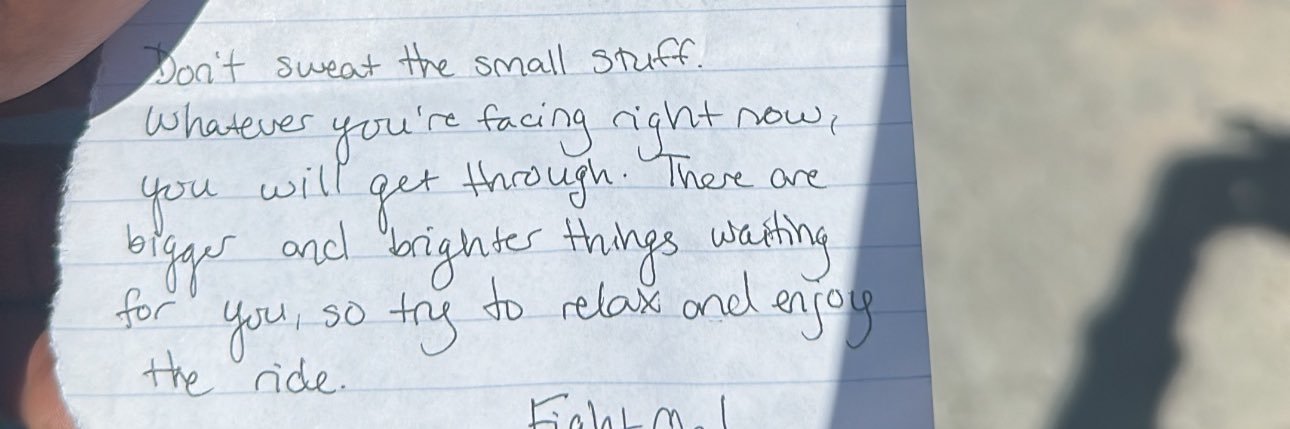 Don't sweat the small stuff.
Whatever you're facing right now,
you will get through. There are
bigger and brighter things waiting
for you, so try to relax and enjoy
the ride.